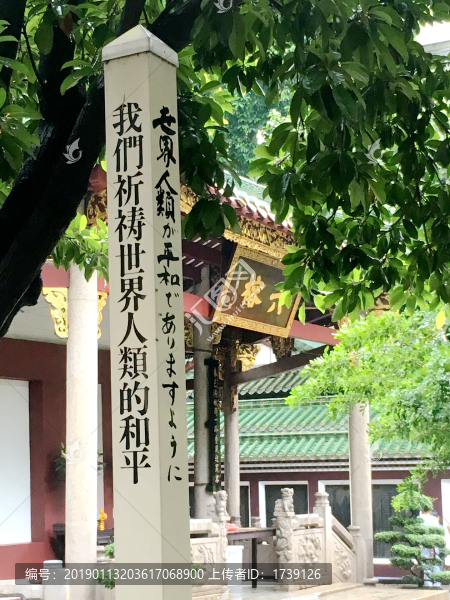 世界人類が平和でありますように
我們祈禱世界人類的和平
编号：20190113203617068900 上传者 1739120